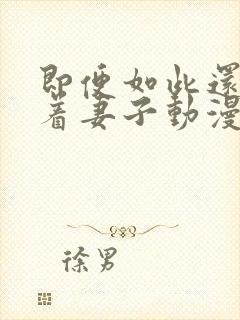 即便如此還
着妻子動漫
徐男